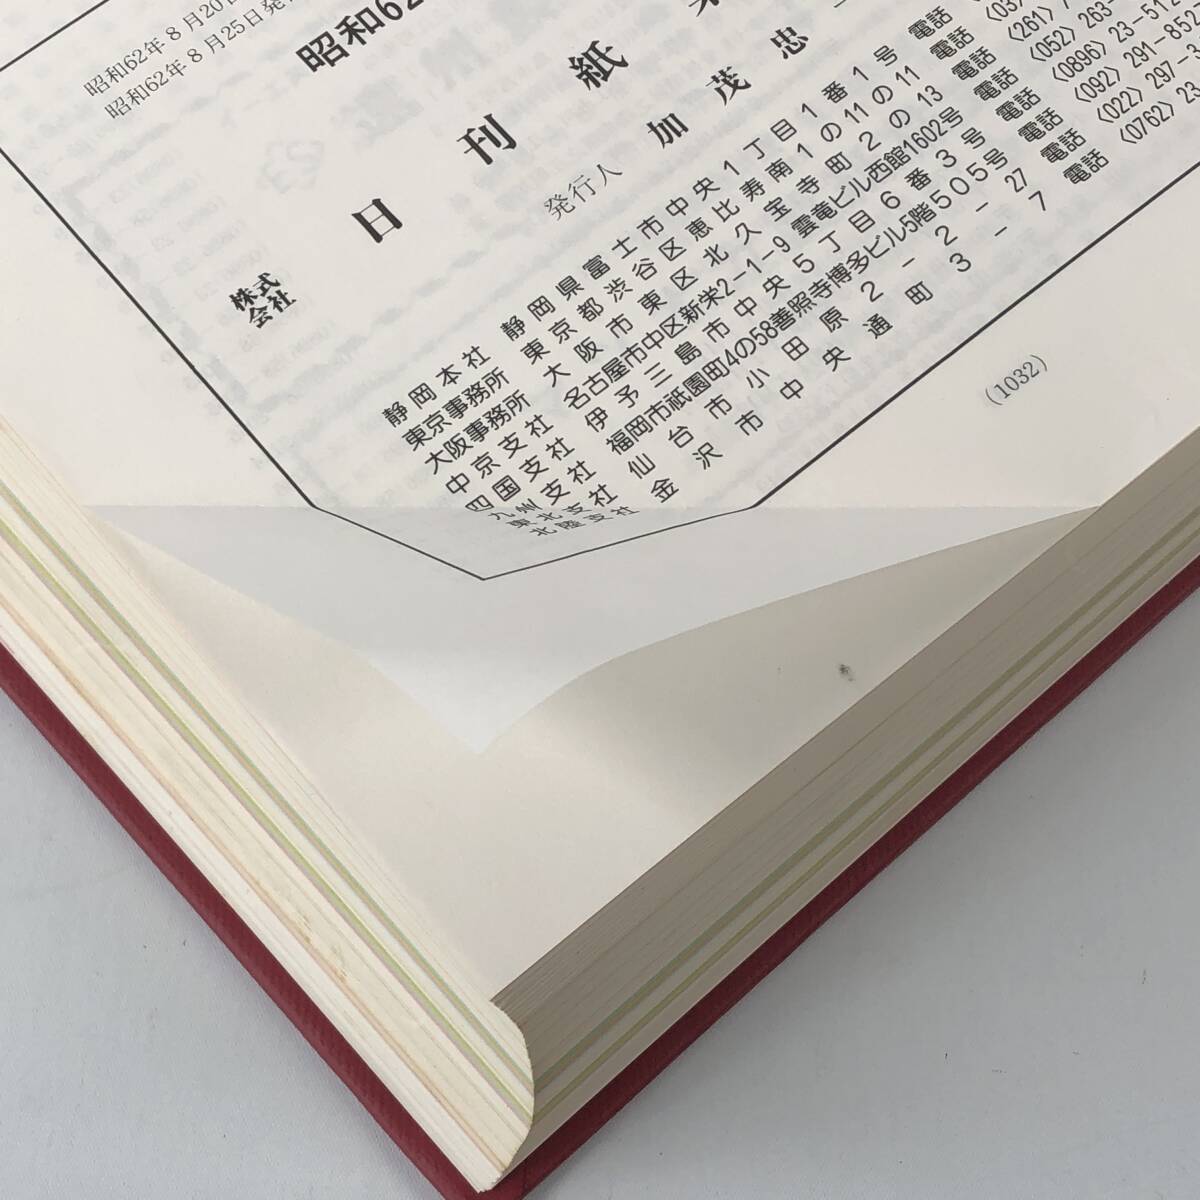 昭和62年8月20日
昭和62年8月25日発
昭和62
株式会社 日刊紙
発行人 加茂忠
静岡本社 静岡県富士市中央1丁目1番1号 電話
東京事務所 東京都渋谷区恵比寿南1の11の11 電話 〈03〉
大阪事務所 大阪市東区北久宝寺町2の13 電話
中京支社 名古屋市中区新栄2-1-9 雲竜ビル西館1602号 電話 〈052〉 263-
四国支社 伊予三島市中央5丁目6番3号 電話 〈0896〉 23-512
九州支社 福岡市祇園町4の58善照寺博多ビル5階505号 電話 〈092〉 291-852
東北支社 仙台市小田原2-2-27 電話 〈022〉 297-3
北陸支社 金沢市中央通町3-7 電話 〈0762〉 23
(1032)